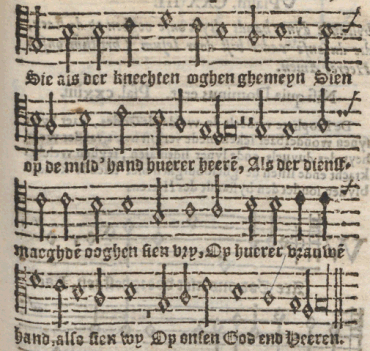 Sie als der knechten oghen ghemeyn Sien
op de mild' hand huerer heerē, Als der dienst-
maeghdē ooghen sien vry, Op huerer vrauwē
hand, also sien wy Op onsen God end Heeren.